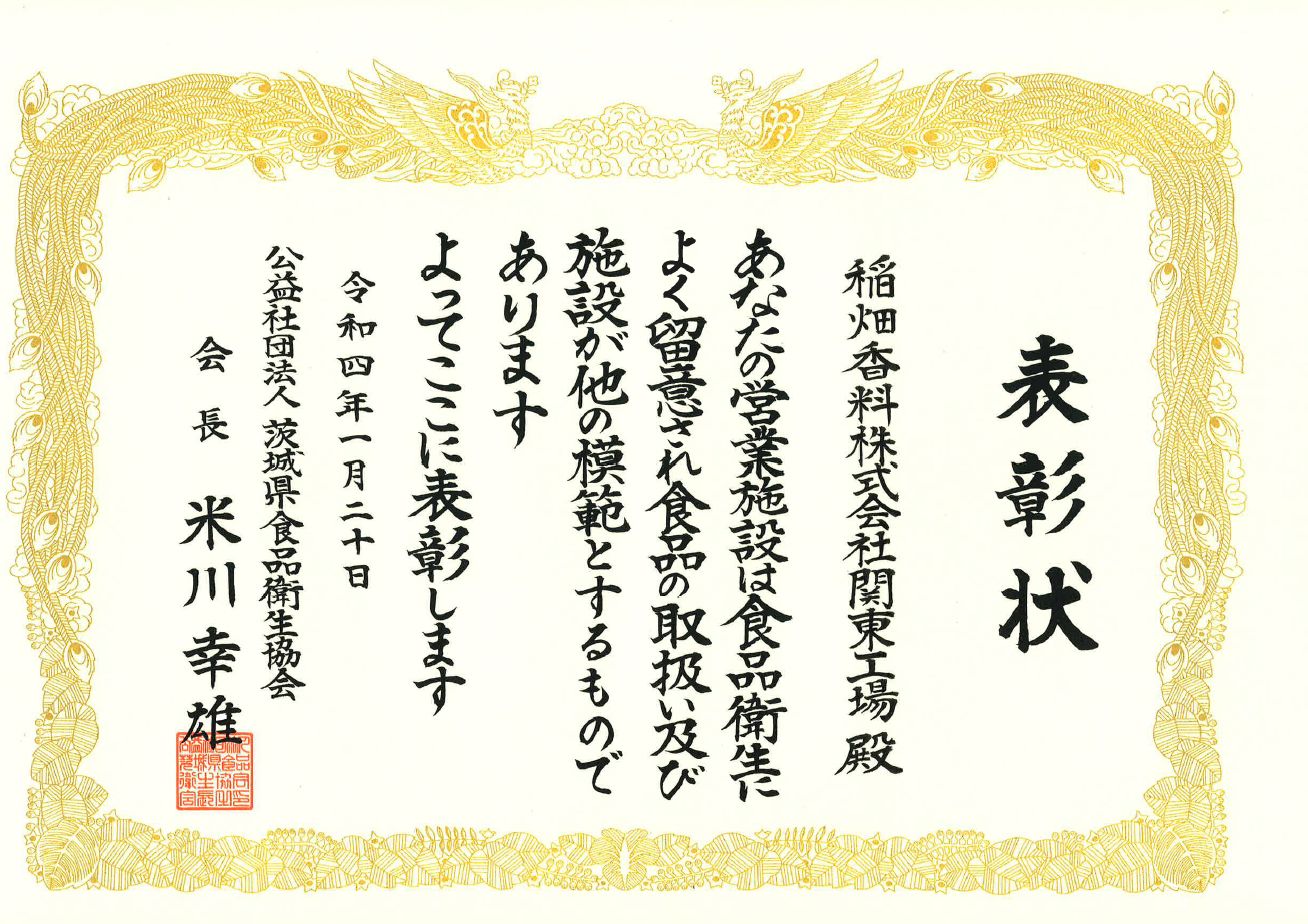 表彰状
稲畑香料株式会社関東工場殿
あなたの営業施設は食品衛生に
よく留意され食品の取扱い及び
施設が他の模範とするもので
あります
よってここに表彰します
令和四年一月二十日
公益社団法人 茨城県食品衛生協会
会長 米川幸雄